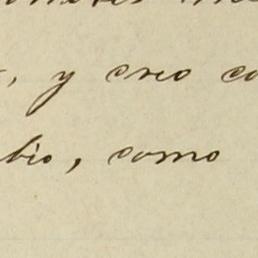 , y creo co
bio, como